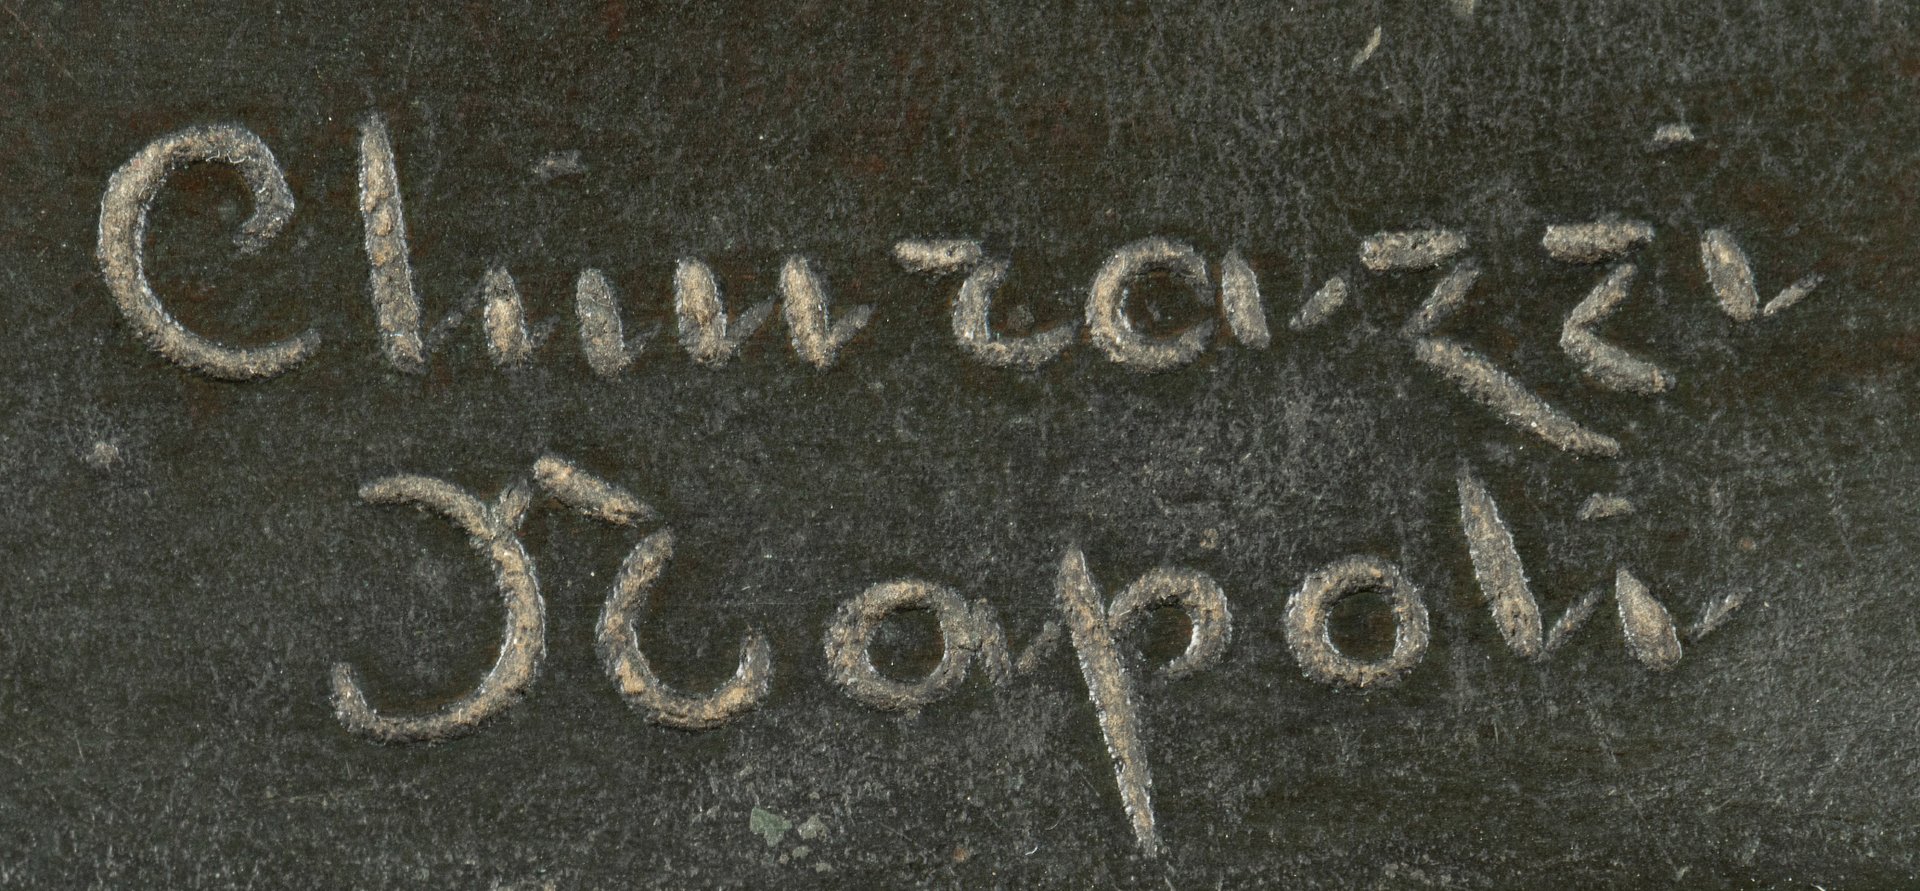 Chiurazzi
Napoli